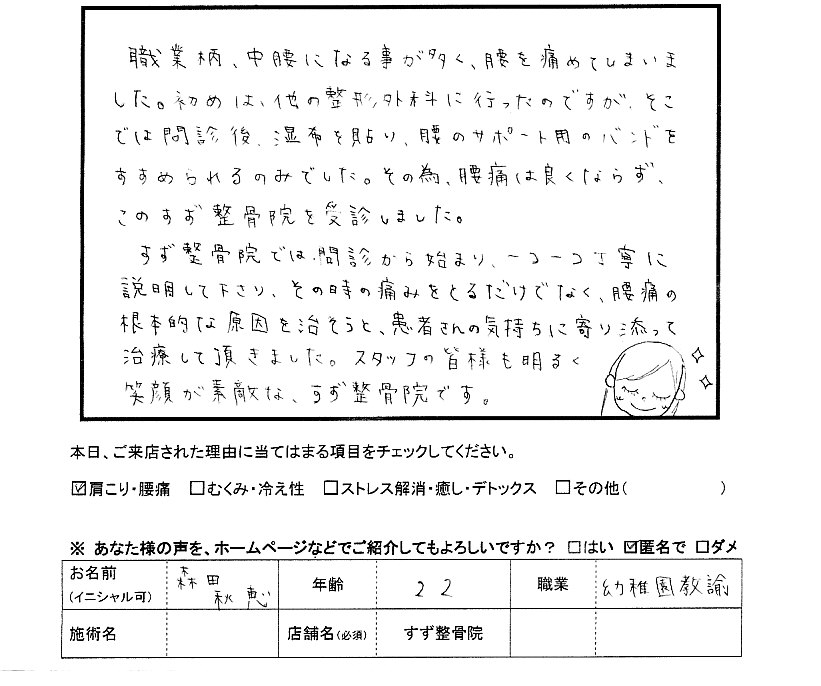 職業柄、中腰になる事が多く、腰を痛めてしまいま
した。初めは、他の整形外科に行ったのですが、そこ
では問診後、湿布を貼り、腰のサポート用のバンドを
すすめられるのみでした。その為、腰痛は良くならず、
このすず整骨院を受診しました。
すず整骨院では、問診から始まり、一つ一つ丁寧に
説明して下さり、その時の痛みをとるだけでなく、腰痛の
根本的な原因を治そうと、患者さんの気持ちに寄り添って
治療して頂きました。スタッフの皆様も明るく
笑顔が素敵な、すず整骨院です。
本日、ご来店された理由に当てはまる項目をチェックしてください。
☑肩こり・腰痛 □むくみ・冷え性 □ストレス解消・癒し・デトックス □その他( )
※ あなた様の声を、ホームページなどでご紹介してもよろしいですか？ □はい ☑匿名で □ダメ
お名前 (イニシャル可) 森田 秋恵 年齢 22 職業 幼稚園教諭
施術名 店舗名(必須) すず整骨院